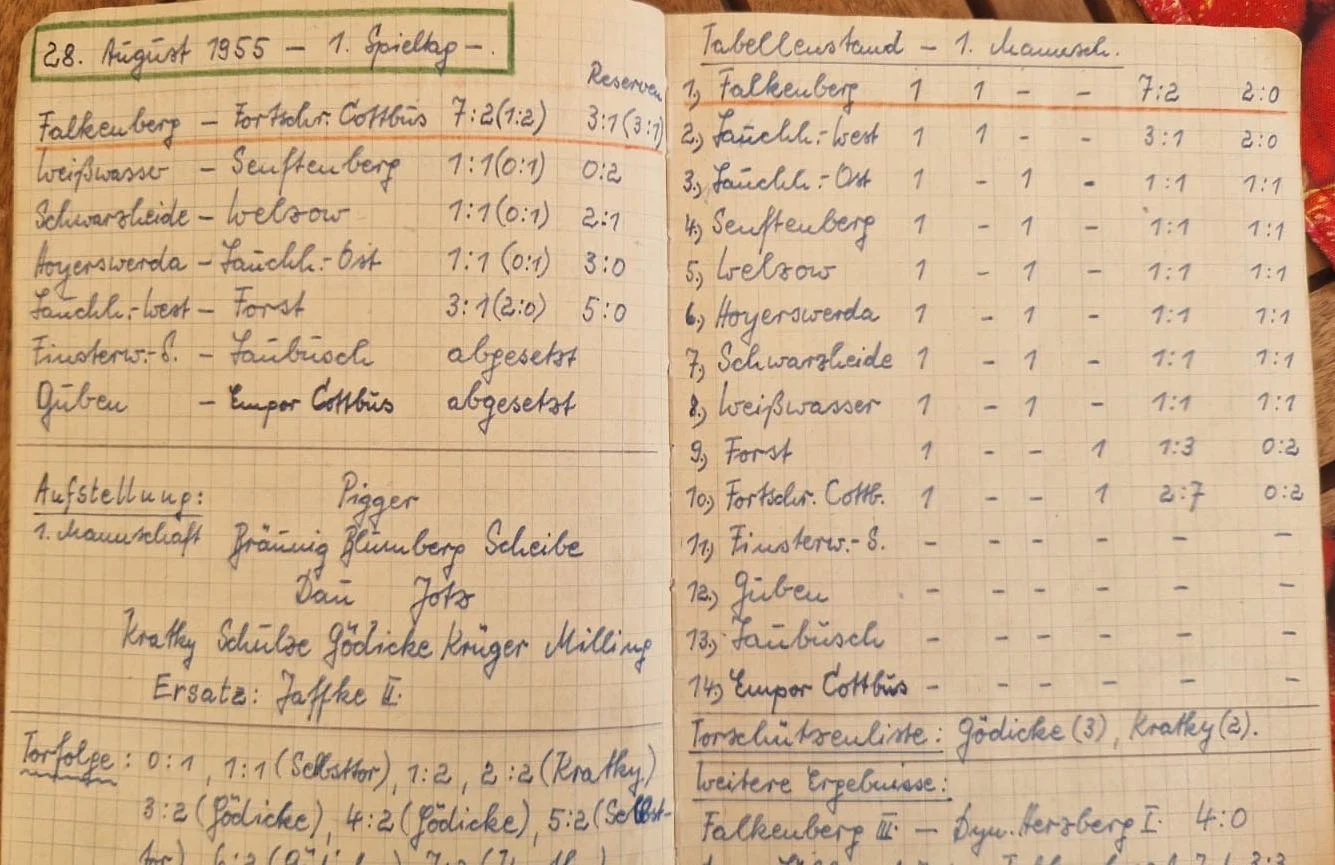 28. August 1955 – 1. Spieltag –.
Reserven
Falkenberg – Fortschr. Cottbus 7:2(1:2) 3:1(3:1)
Weißwasser – Senftenberg 1:1(0:1) 0:2
Schwarzheide – Welzow 1:1(0:1) 2:1
Hoyerswerda – Lauchh.-Ost 1:1(0:1) 3:0
Lauchh.-West – Forst 3:1(2:0) 5:0
Finsterw.-S. – Laubusch abgesetzt
Guben – Empor Cottbus abgesetzt
Aufstellung: Pigger
1. Mannschaft Bräunig Blumberg Scheibe
Dau Jotz
Kratky Schulze Gödicke Krüger Milling
Ersatz: Jaffke II.
Torfolge: 0:1, 1:1 (Selbsttor), 1:2, 2:2 (Kratky)
3:2 (Gödicke), 4:2 (Gödicke), 5:2 (Selbst-
tor)
Tabellenstand – 1. Mannsch.
1.) Falkenberg 1 1 – – 7:2 2:0
2.) Lauchh.-West 1 1 – – 3:1 2:0
3.) Lauchh.-Ost 1 – 1 – 1:1 1:1
4.) Senftenberg 1 – 1 – 1:1 1:1
5.) Welzow 1 – 1 – 1:1 1:1
6.) Hoyerswerda 1 – 1 – 1:1 1:1
7.) Schwarzheide 1 – 1 – 1:1 1:1
8.) Weißwasser 1 – 1 – 1:1 1:1
9.) Forst 1 – – 1 1:3 0:2
10.) Fortschr. Cottb. 1 – – 1 2:7 0:2
11.) Finsterw.-S. – – – – – –
12.) Guben – – – – – –
13.) Laubusch – – – – – –
14.) Empor Cottbus – – – – – –
Torschützenliste: Gödicke (3), Kratky (2).
Weitere Ergebnisse:
Falkenberg III. – Dyn. Herzberg I. 4:0